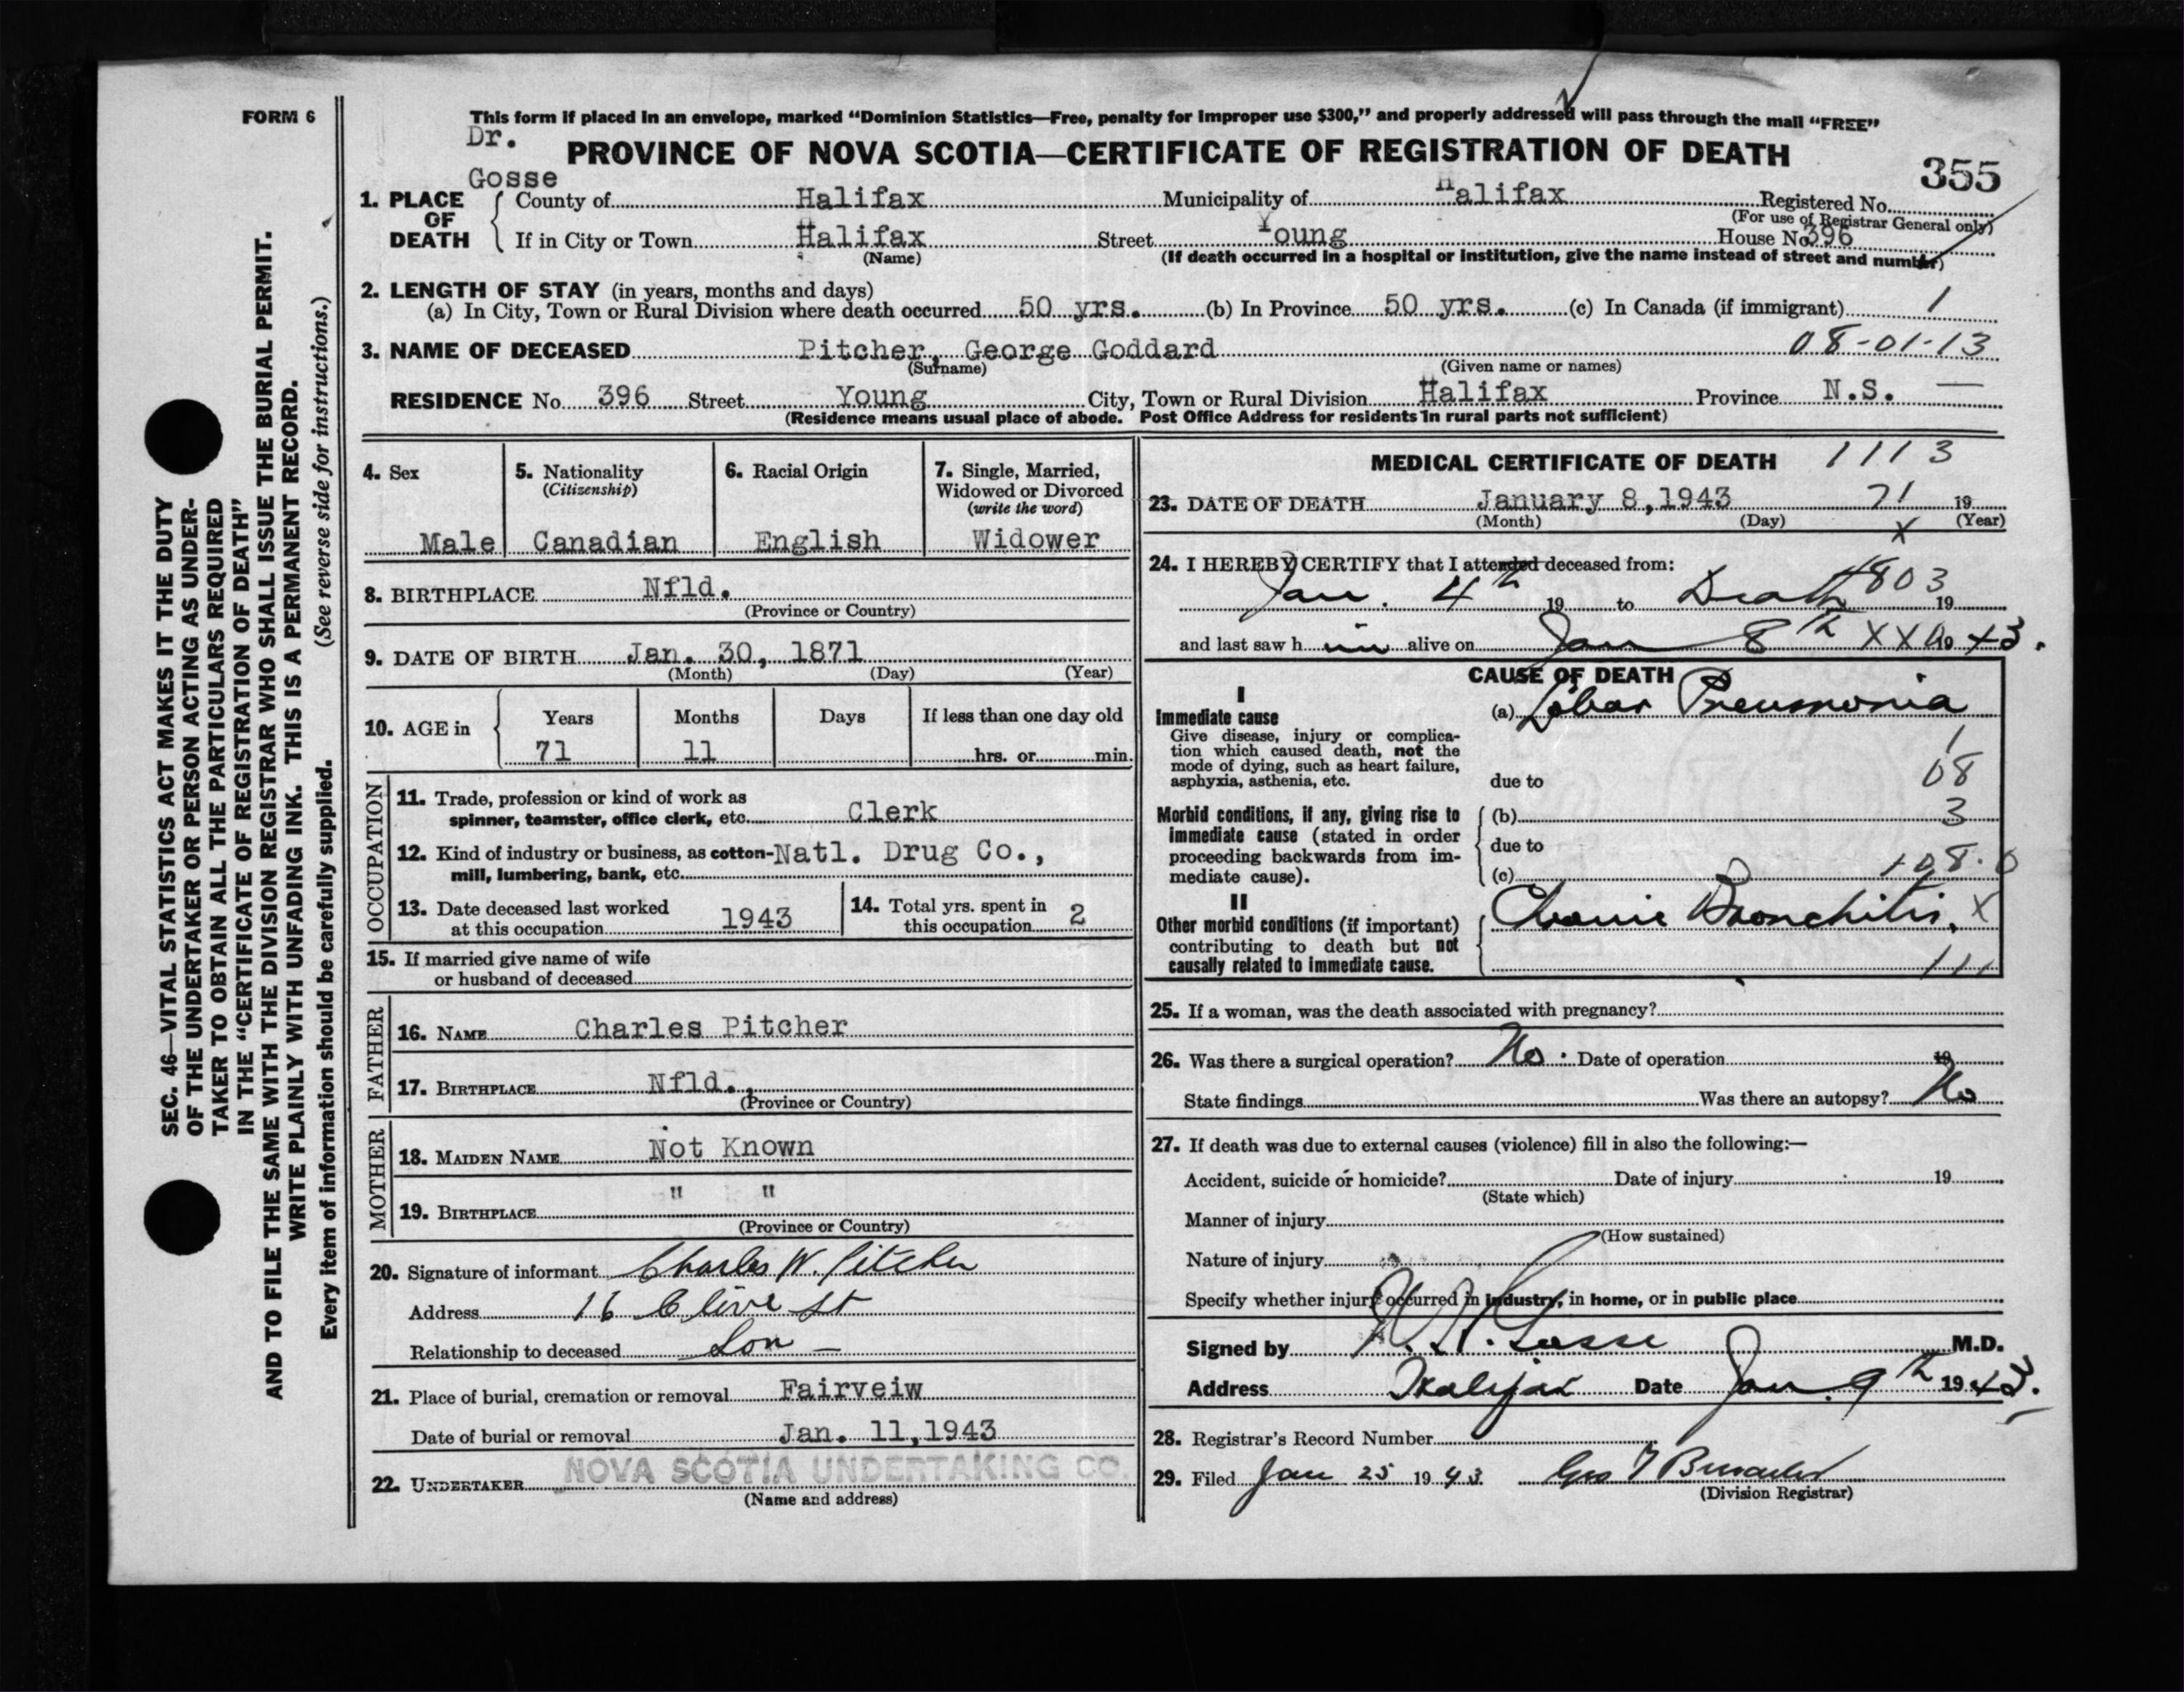 FORM 6
This form if placed in an envelope, marked "Dominion Statistics—Free, penalty for improper use $300," and properly addressed will pass through the mail "FREE"
Dr.
Gosse
PROVINCE OF NOVA SCOTIA—CERTIFICATE OF REGISTRATION OF DEATH
355
1. PLACE OF DEATH
County of Halifax Municipality of Halifax Registered No.
(For use of Registrar General only)
If in City or Town Halifax Street Young House No 396
(Name) (If death occurred in a hospital or institution, give the name instead of street and number)
2. LENGTH OF STAY (in years, months and days)
(a) In City, Town or Rural Division where death occurred 50 yrs. (b) In Province 50 yrs. (c) In Canada (if immigrant) 1
3. NAME OF DECEASED Pitcher, George Goddard 08-01-13
(Surname) (Given name or names)
RESIDENCE No. 396 Street Young City, Town or Rural Division Halifax Province N.S. —
(Residence means usual place of abode. Post Office Address for residents in rural parts not sufficient)
4. Sex
Male
5. Nationality
(Citizenship)
Canadian
6. Racial Origin
English
7. Single, Married,
Widowed or Divorced
(write the word)
Widower
8. BIRTHPLACE Nfld.
(Province or Country)
9. DATE OF BIRTH Jan. 30, 1871
(Month) (Day) (Year)
10. AGE in
Years Months Days If less than one day old
71 11 hrs. or min.
OCCUPATION
11. Trade, profession or kind of work as
spinner, teamster, office clerk, etc. Clerk
12. Kind of industry or business, as cotton- Natl. Drug Co.,
mill, lumbering, bank, etc.
13. Date deceased last worked
at this occupation 1943
14. Total yrs. spent in
this occupation 2
15. If married give name of wife
or husband of deceased
FATHER
16. NAME Charles Pitcher
17. BIRTHPLACE Nfld.,
(Province or Country)
MOTHER
18. MAIDEN NAME Not Known
19. BIRTHPLACE " "
(Province or Country)
20. Signature of informant Charles W. Pitcher
Address 16 Clive St
Relationship to deceased Son —
21. Place of burial, cremation or removal Fairveiw
Date of burial or removal Jan. 11, 1943
22. UNDERTAKER NOVA SCOTIA UNDERTAKING CO.
(Name and address)
MEDICAL CERTIFICATE OF DEATH 1113
23. DATE OF DEATH January 8, 1943 71 19
(Month) (Day) X (Year)
24. I HEREBY CERTIFY that I attended deceased from:
Jan. 4th 19 to Death 19 803
and last saw him alive on Jan 8th XX 1943.
CAUSE OF DEATH
I
Immediate cause
Give disease, injury or complica-
tion which caused death, not the
mode of dying, such as heart failure,
asphyxia, asthenia, etc.
(a) Lobar Pneumonia
1
08
due to
Morbid conditions, if any, giving rise to
immediate cause (stated in order
proceeding backwards from im-
mediate cause).
(b) 3
due to
(c) 108.0
II
Other morbid conditions (if important)
contributing to death but not
causally related to immediate cause.
Chronic Bronchitis. X
111
25. If a woman, was the death associated with pregnancy?
26. Was there a surgical operation? No. Date of operation 19
State findings Was there an autopsy? No
27. If death was due to external causes (violence) fill in also the following:—
Accident, suicide or homicide? Date of injury 19
(State which)
Manner of injury
(How sustained)
Nature of injury
Specify whether injury occurred in industry, in home, or in public place
Signed by Gosse M.D.
Address Halifax Date Jan. 9th 1943.
28. Registrar's Record Number
29. Filed Jan 25 1943
(Division Registrar)
SEC. 46—VITAL STATISTICS ACT MAKES IT THE DUTY
OF THE UNDERTAKER OR PERSON ACTING AS UNDER-
TAKER TO OBTAIN ALL THE PARTICULARS REQUIRED
IN THE "CERTIFICATE OF REGISTRATION OF DEATH"
AND TO FILE THE SAME WITH THE DIVISION REGISTRAR WHO SHALL ISSUE THE BURIAL PERMIT.
WRITE PLAINLY WITH UNFADING INK. THIS IS A PERMANENT RECORD.
Every item of information should be carefully supplied. (See reverse side for instructions.)